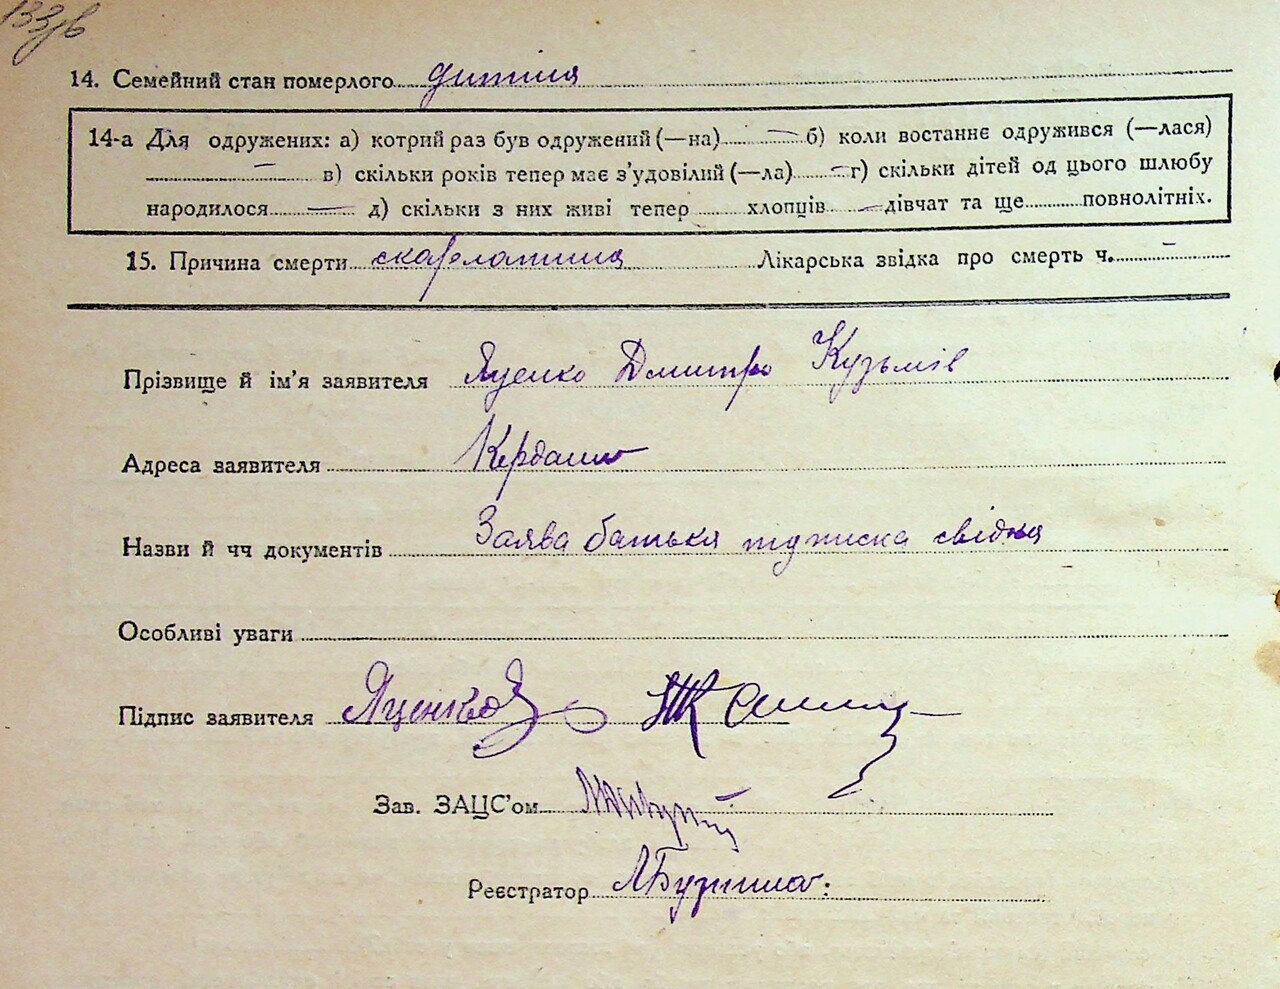 133зв
14. Семейний стан померлого дитина
14-а Для одружених: а) котрий раз був одружений (—на) — б) коли востаннє одружився (—лася)
— в) скільки років тепер має з’удовілий (—ла) — г) скільки дітей од цього шлюбу
народилося — д) скільки з них живі тепер хлопців — дівчат та ще повнолітніх.
15. Причина смерти скарлатина Лікарська звідка про смерть ч. —
Прізвище й ім’я заявителя Яценко Дмитро Кузьмів
Адреса заявителя
Назви й чч документів Заява батька підписка свідка
Особливі уваги
Підпис заявителя Яценко
Зав. ЗАЦС’ом
Реєстратор